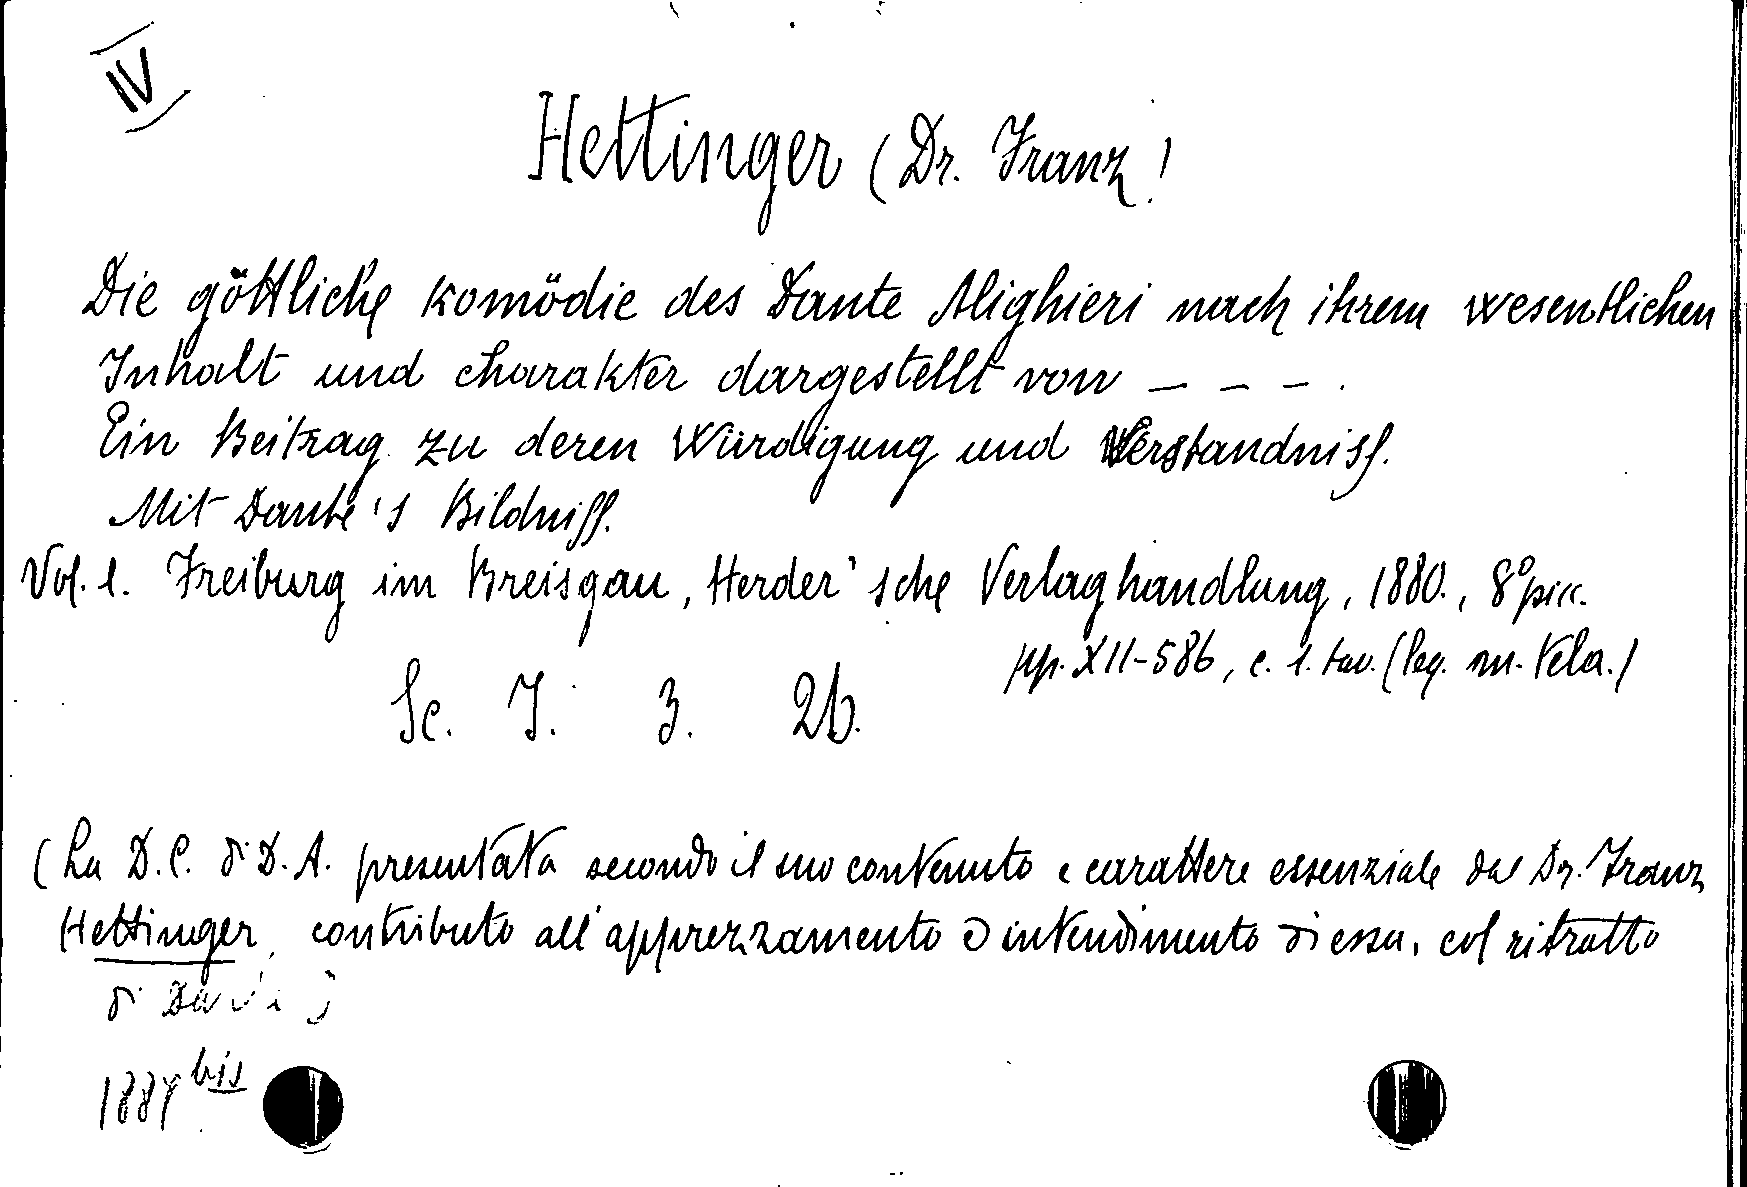 IV
Hettinger (Dr. Franz)
Die göttliche Komödie des Dante Alighieri nach ihrem wesentlichen
Inhalt und Charakter dargestellt von – – – .
Ein Beitrag zu deren Würdigung und Verständniss.
Mit Dante's Bildniss.
Vol. 1. Freiburg im Breisgau, Herder'sche Verlaghandlung, 1880., 8º picc.
pp. XII-586, c. 1. tav. (leg. m. tela.)
Sc. I. 3. 26.
(La D.C. di D.A. presentata secondo il suo contenuto e carattere essenziale dal Dr. Franz
Hettinger, contributo all'apprezzamento e intendimento di essa, col ritratto
di Dante)
bis